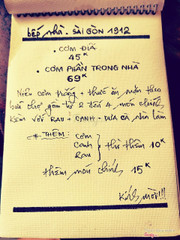 bếp nhà. SÀI GÒN 1912
• CƠM ĐĨA
45K
• CƠM PHẦN TRONG NHÀ
69K
Nồi cơm trắng + thức ăn món theo
bữa chợ gồm từ 2 đến 4 món chính
Kèm với RAU + CANH + DƯA CÀ bình dân
* THÊM: Cơm
Canh
Rau
thì thêm 10K
thêm món chính 15K
Kính mời!!!